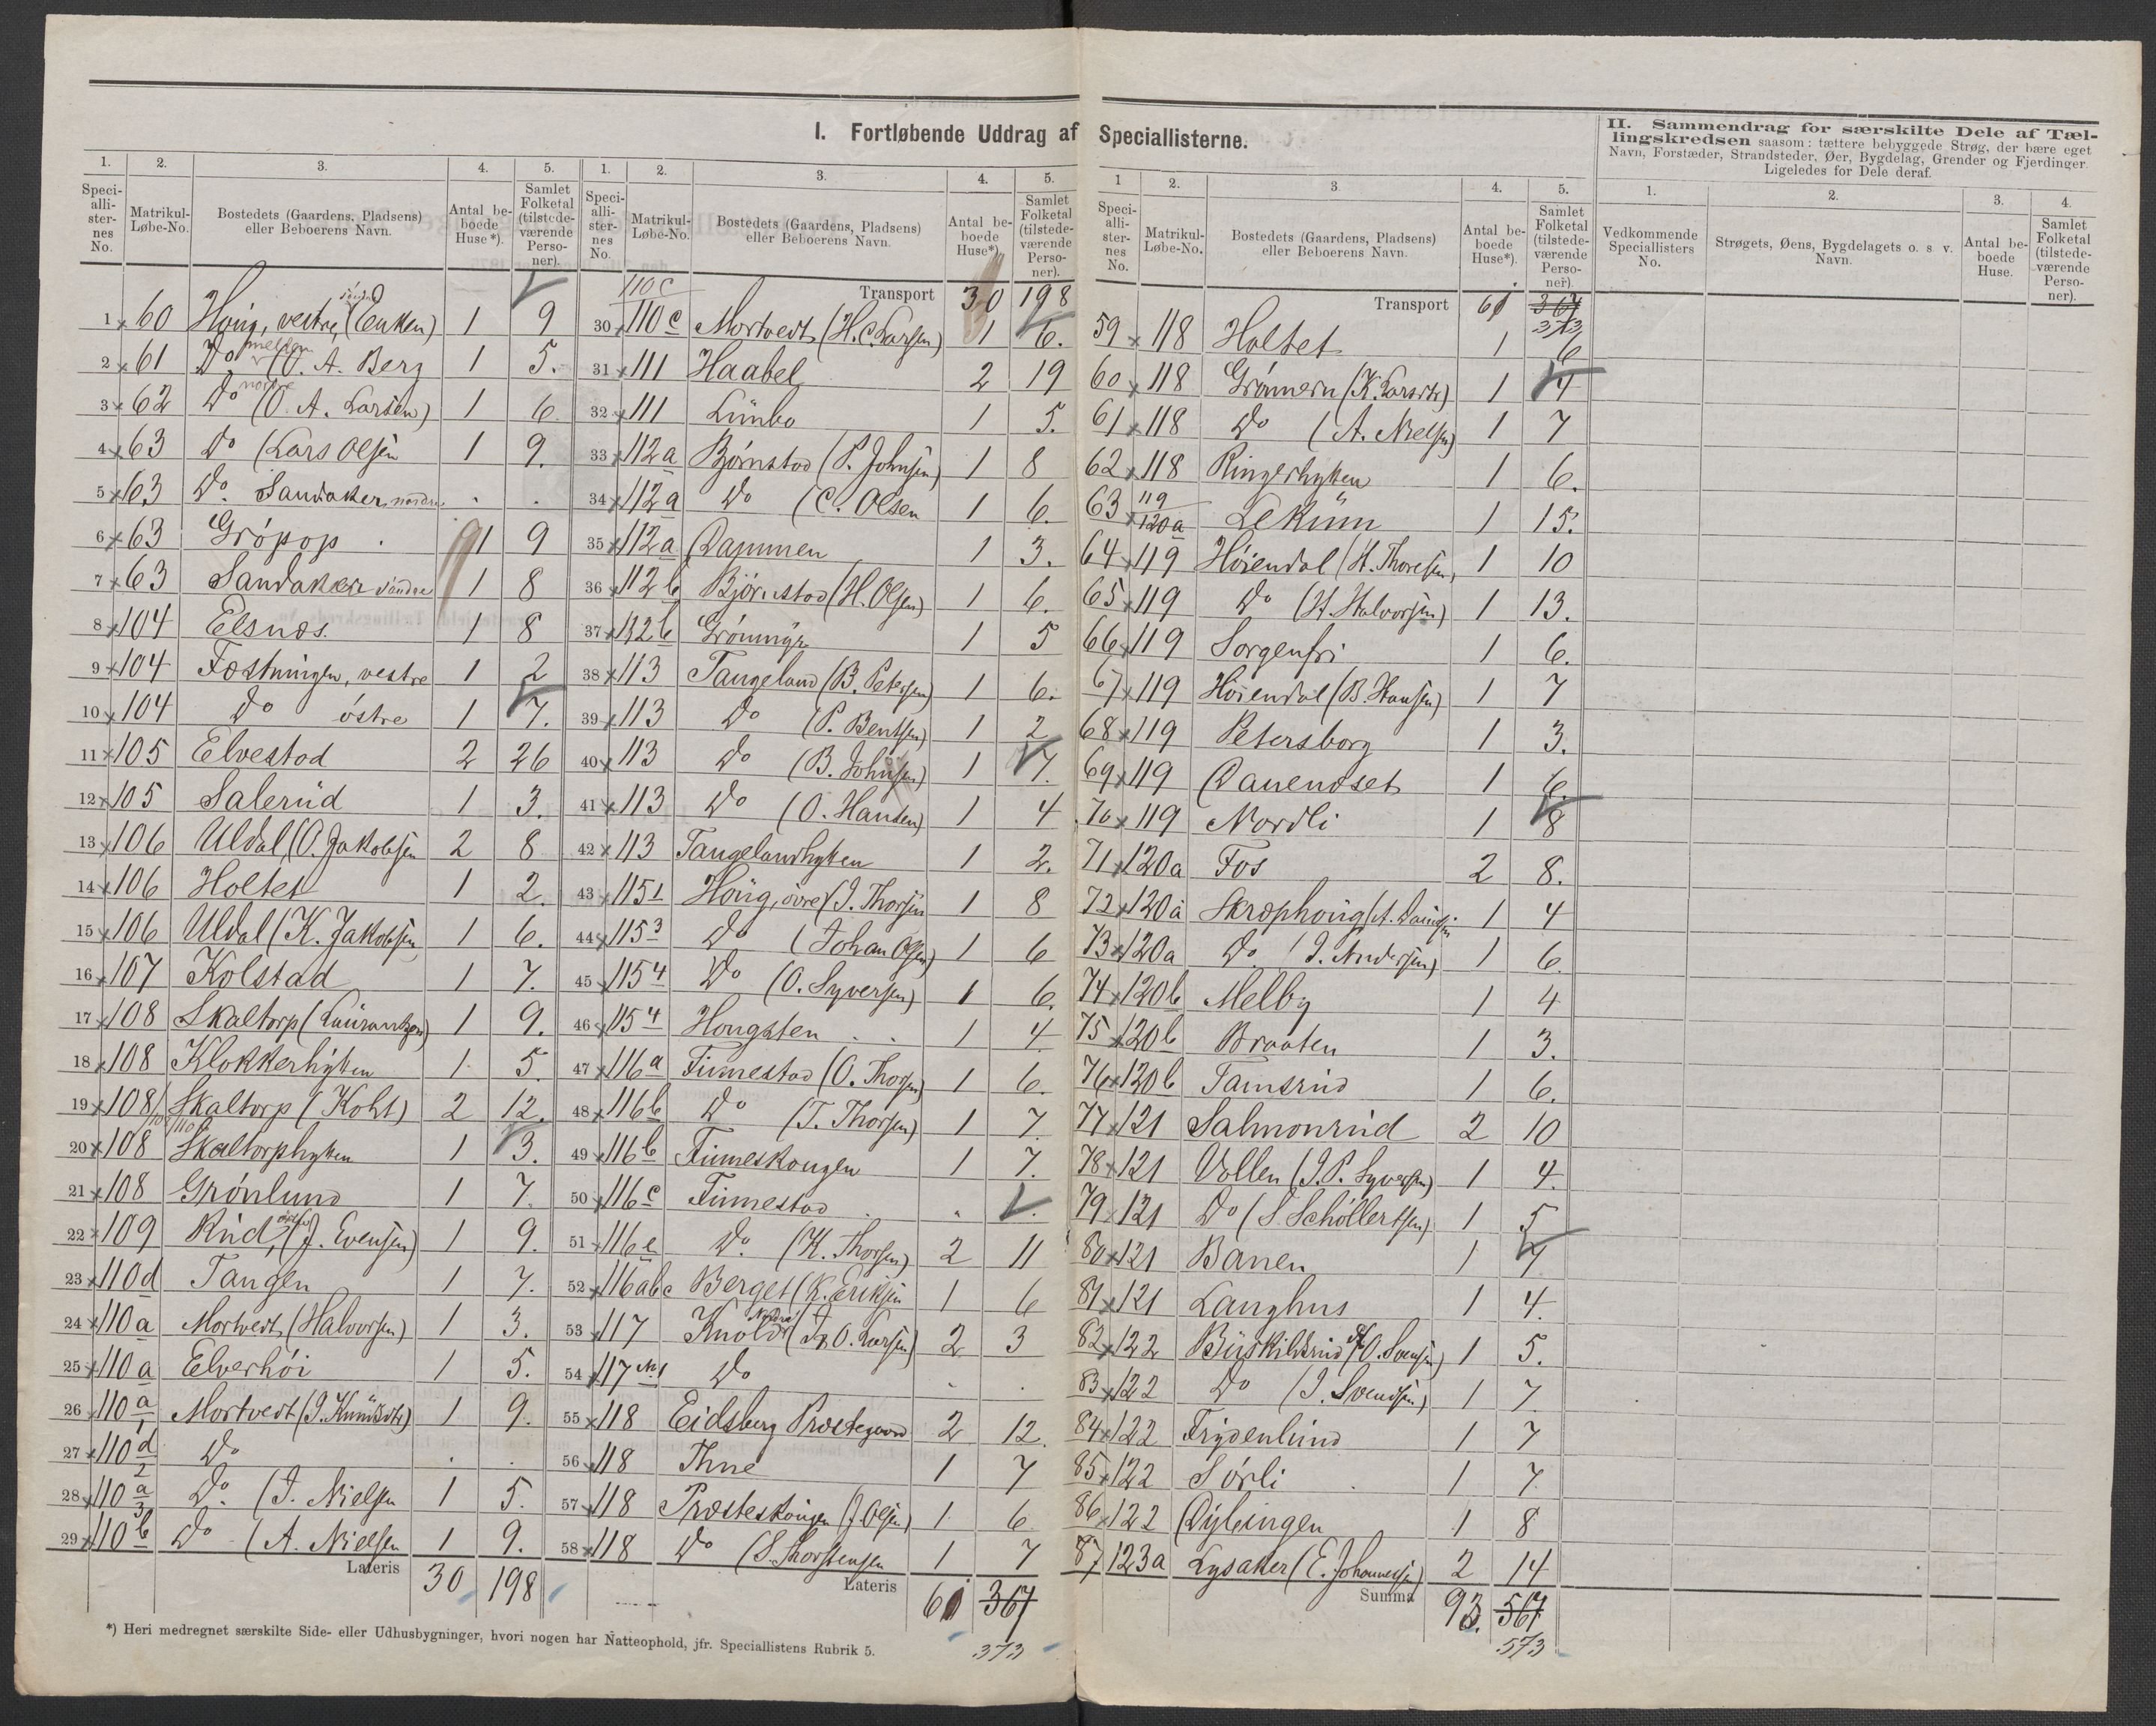 I. Fortløbende Uddrag af Speciallisterne.
II. Sammendrag for særskilte Dele af Tæl-
lingskredsen saasom: tættere bebyggede Strøg, der bære eget
Navn, Forstæder, Strandsteder, Øer, Bygdelag, Grender og Fjerdinger.
Ligeledes for Dele deraf.
1. 2. 3. 4. 5.
Speci-alli-ster-nes No. Matrikul-Løbe-No. Bostedets (Gaardens, Pladsens) eller Beboerens Navn. Antal be-boede Huse*). Samlet Folketal (tilstede-værende Perso-ner).
1 60 Houg, vestre, (Enken) 1 9
2 61 Do mellem (O. A. Berg 1 5.
3 62 Do nordre (O. A. Larsen) 1 6
4 63 Do (Lars Olsen 1 9.
5 63 Do. Sandaker, nordre . .
6 63 Grøpop 1 9
7 63 Sandaker søndre 1 8
8 104 Elsnes. 1 8
9 104 Fostningen, vestre 1 2
10 104 Do østre 1 7.
11 105 Elvestad 2 26
12 105 Salerud 1 3.
13 106 Uldal (O. Jakobsen 2 8
14 106 Holtet 1 2.
15 106 Uldal (K. Jakobsen 1 6.
16 107 Kolstad 1 7.
17 108 Skaltorp (Laurantzen) 1 9.
18 108 Klokkerhytten 1 5.
19 108/109/110 Skaltorp (Koht) 2 12.
20 108 Skaltorphytten 1 3.
21 108 Grønlund 1 7.
22 109 Rud, (J. Evensen) 1 9.
23 110d Tangen 1 7.
24 110a Mortvedt (Halvorsen) 1 3.
25 110a Elverhøi 1 5.
26 110a/1 Mortvedt (I. Knudsdtr) 1 9.
27 110d/2 Do . .
28 110a/3 Do. (I. Nielsen 1 5.
29 110b Do (A. Nielsen 1 9.
Lateris 30 198
*) Heri medregnet særskilte Side- eller Udhusbygninger, hvori nogen har Natteophold, jfr. Speciallistens Rubrik 5.
1. 2. 3. 4. 5.
Speci-alli-ster-nes No. Matrikul-Løbe-No. Bostedets (Gaardens, Pladsens) eller Beboerens Navn. Antal be-boede Huse*). Samlet Folketal (tilstede-værende Perso-ner).
110c Transport 30 198
30 110c Mortvedt (H. C. Larsen) 1 6.
31 111 Haabel 2 19
32 111 Lunbo 1 5.
33 112a Bjørnstad (P. Johnsen) 1 8
34 112a Do (C. Olsen 1 6.
35 112a Dammen 1 3.
36 112b Bjørnstad (H. Olsen) 1 6.
37 112b Grønmyr 1 5
38 113 Tangeland (B. Petersen) 1 6.
39 113 Do (P. Bentsen) 1 2
40 113 Do (B. Johnsen) 1 7.
41 113 Do (O. Hansen) 1 4
42 113 Tangelandhytten 1 2.
43 115 1 Houg, øvre (I. Thorsen 1 8
44 115 3 Do (Johan Olsen) 1 6
45 115 4 Do (O. Syversen) 1 6.
46 115 4 Hougsten 1 4
47 116a Finnestad (O. Thorsen) 1 6.
48 116b Do (T. Thorsen) 1 7.
49 116b Finneskougen 1 7.
50 116c Finnestad . .
51 116e Do. (K. Thorsen) 2 11
52 116abc Berget (K. Eriksen 1 6
53 117 Knold nedre (O. Larsen) 2 3
54 117 No 1 Do . .
55 118 Eidsberg Præstegaard 2 12.
56 118 Thue 1 7
57 118 Prosteskougen (J. Olsen) 1 6
58 118 Do (S. Thorstensen 1 7
Lateris 61 367
373
1 2. 3. 4. 5.
Speci-alli-ster-nes No. Matrikul-Løbe-No. Bostedets (Gaardens, Pladsens) eller Beboerens Navn. Antal be-boede Huse*). Samlet Folketal (tilstede-værende Perso-ner).
Transport 61 367
373
59 118 Holtet 1 6
60 118 Grønnern (K. Larsdtr) 1 4
61 118 Do (A. Nielsen) 1 7
62 118 Ringerhytten 1 6.
63 119/120a Lekum 1 15.
64 119 Høiendal (H. Thoresen) 1 10
65 119 Do (H. Halvorsen) 1 13.
66 119 Sorgenfri 1 6.
67 119 Høiendal (B. Hansen) 1 7
68 119 Petersborg 1 3.
69 119 Dauendset 1 6.
70 119 Nordli 1 8
71 120a Fos 2 8.
72 120a Skrophoug 1 4
73 120a Do. (I. Andersen) 1 6.
74 120b Melby 1 4
75 120b Braaten 1 3.
76 120b Tamsrud 1 6.
77 121 Salmonrud 2 10
78 121 Vollen (I. P. Syversen) 1 4.
79 121 Do (S. Schöllertsen) 1 5
80 121 Banen 1 7
81 121 Langhus 1 4.
82 122 Buskildsrud (O. Svensen) 1 5.
83 122 Do (I. Svendsen) 1 7.
84 122 Frydenlund 1 7
85 122 Sørli 1 7.
86 122 Dybingen 1 8
87 123a Lysaker (E. Johannessen) 2 14
Summa 93. 567
573
1. 2. 3. 4.
Vedkommende Speciallisters No. Strøgets, Øens, Bygdelagets o. s. v. Navn. Antal be-boede Huse. Samlet Folketal (tilstede-værende Perso-ner).